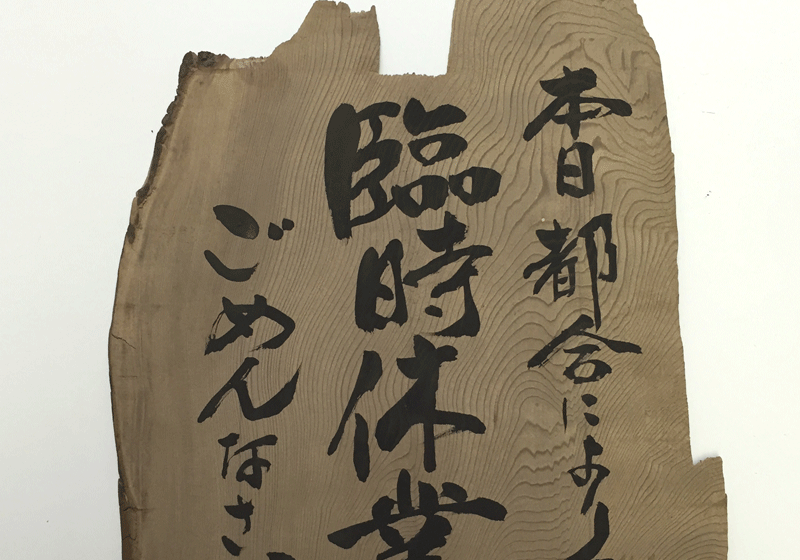 本日都合により
臨時休業
ごめんなさい